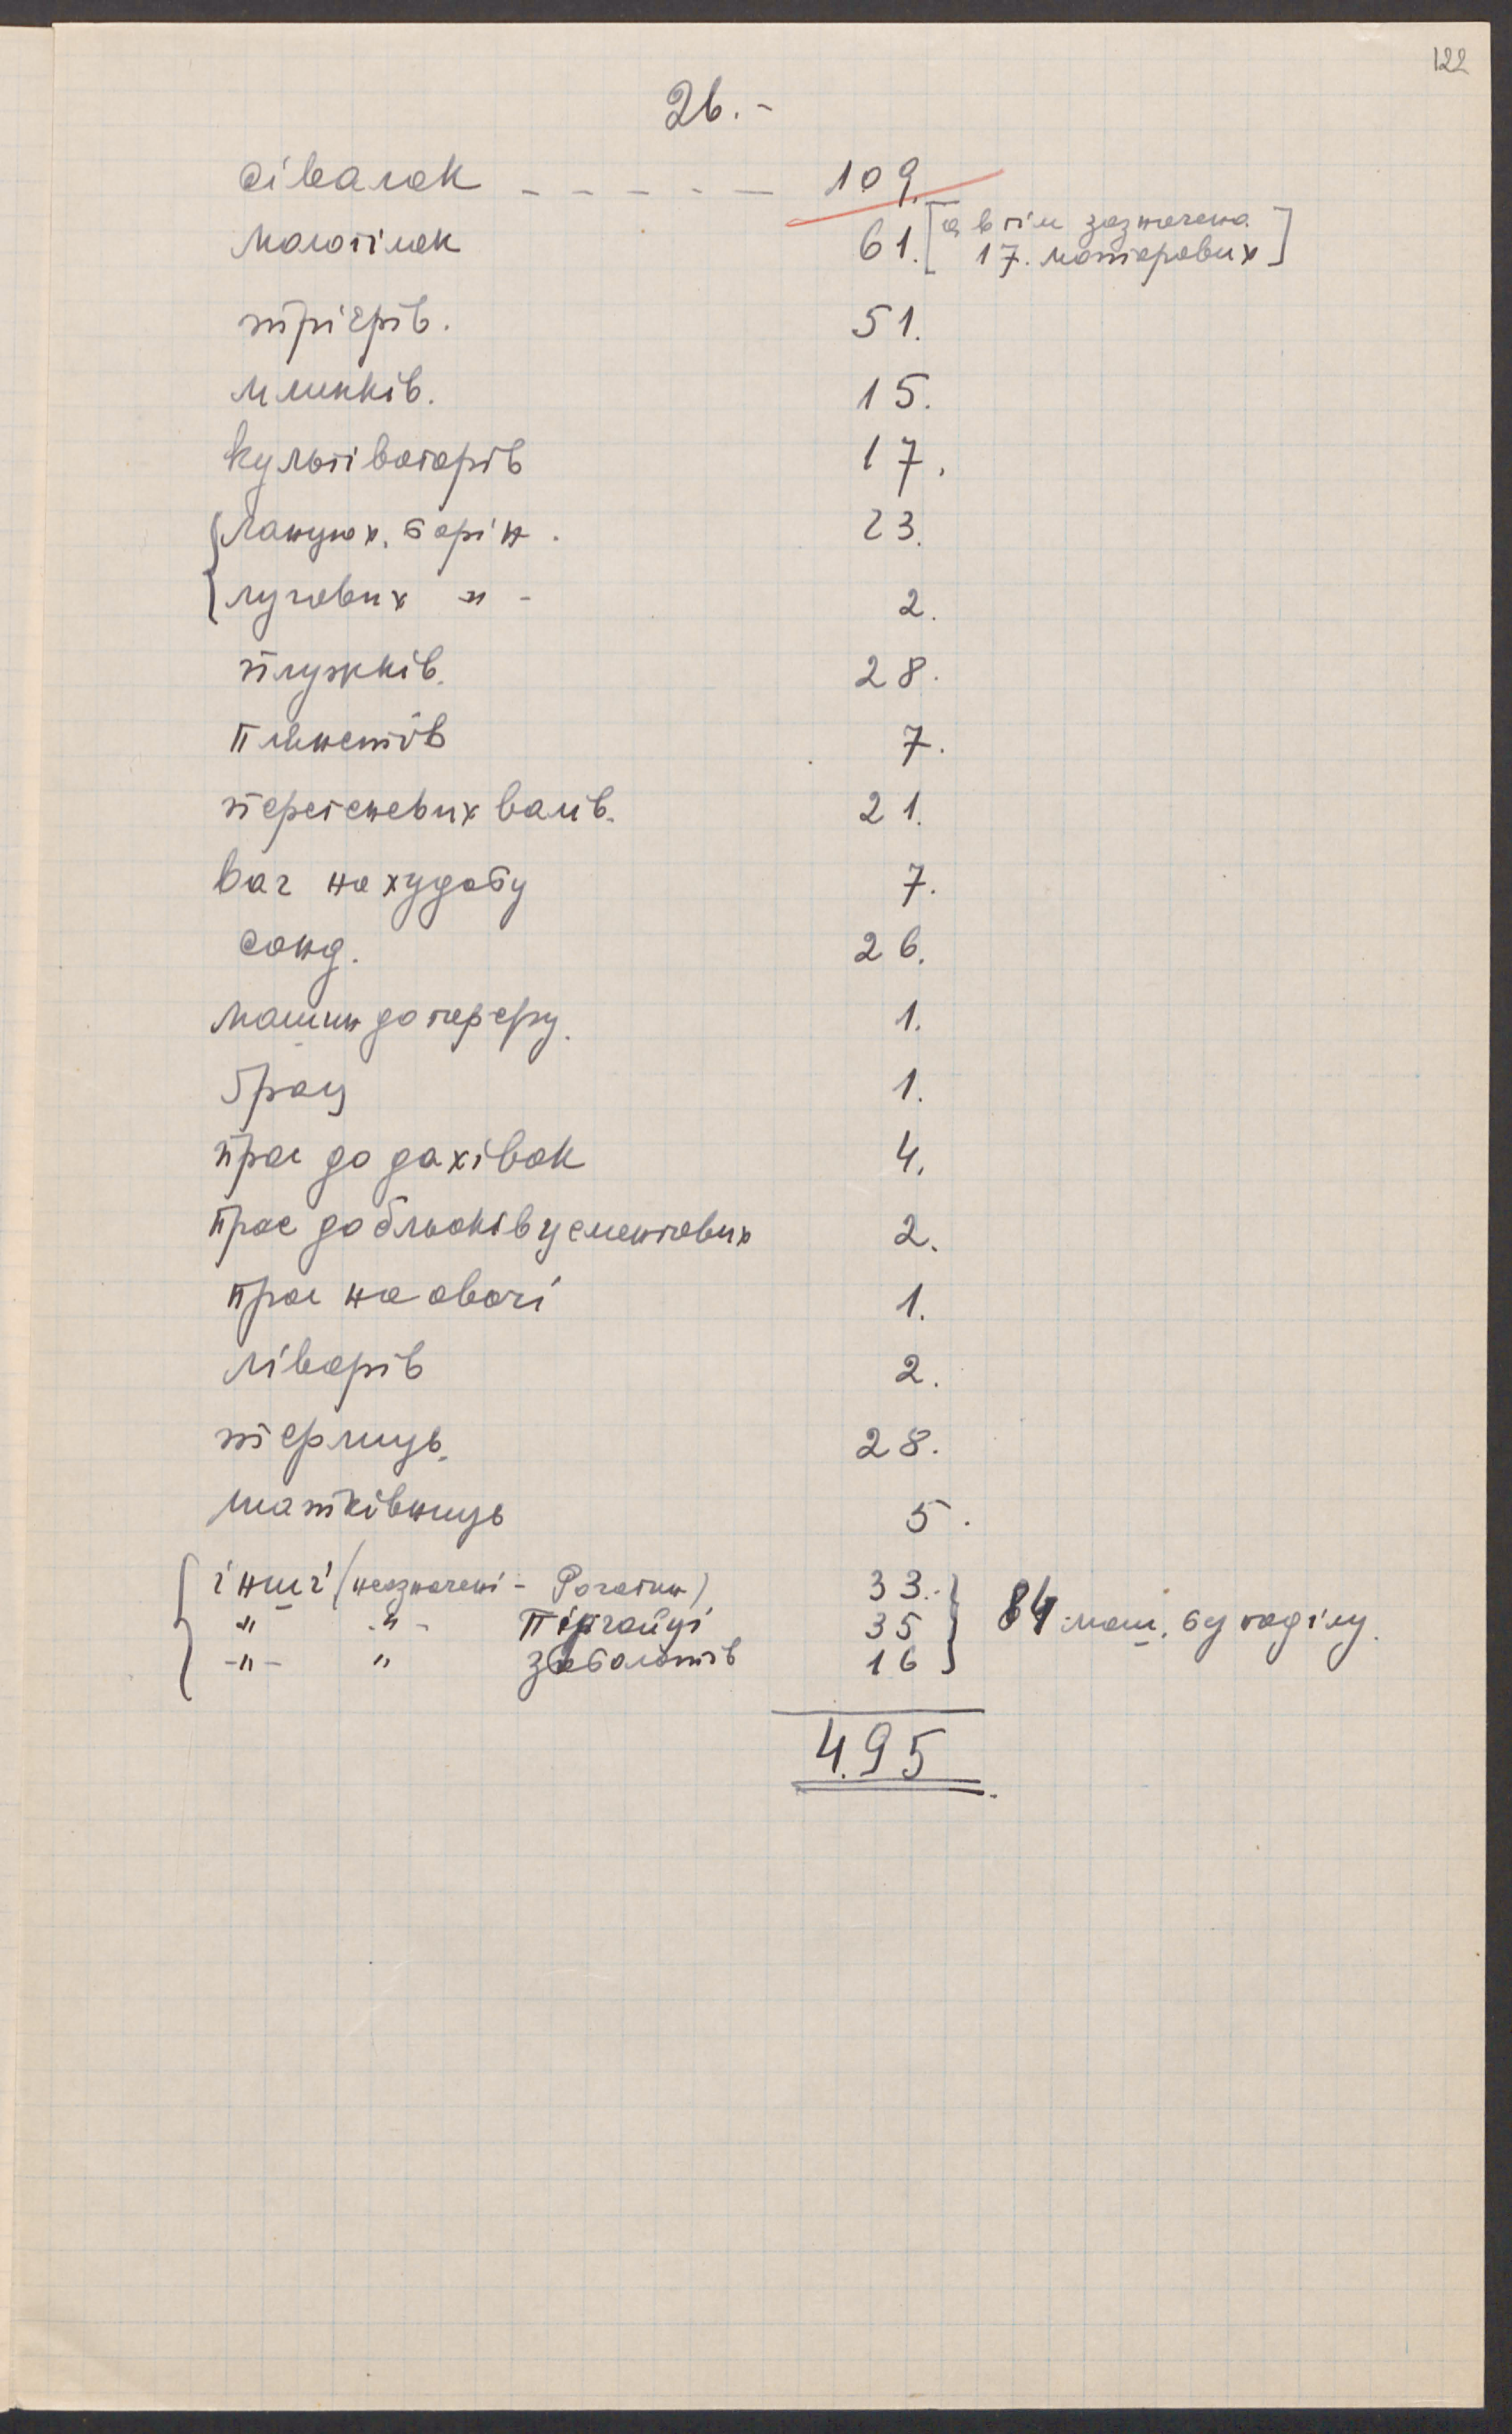 122
26.-
сівалок - - - - - 109.
молотілок 61. [а в тім зазначено
17. моторових]
трієрів. 51.
млинків. 15.
культіваторів 17.
ланцюх. борін. 23.
лугових -"- 2.
плужків. 28.
плянетів 7.
перстеневих валів. 21.
ваг на худобу 7.
сонд. 26.
машин до 1.
1.
прас до дахівок 4.
прас до бльоків цементових 2.
прас на овочі 1.
ліварів 2.
терлиць. 28.
шатківниць 5.
інші (незначені - Рогатин) 33.
" -"- Підгайці 35 84 маш. без поділу.
-"- " Заболотів 16
495